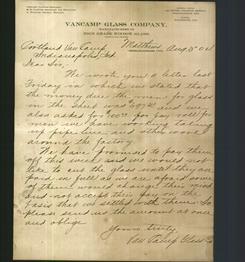 VANCAMP GLASS COMPANY,
HIGH GRADE WINDOW GLASS
Matthews Aug 5" 04
Cortland Van Camp,
Indianapolis Ind
Dear Sir,
We wrote you a letter last
Friday in which we stated that
the money due the men for glass
on the shed was
also asked for for pay roll for
men we had working taking
up pipe line and other work
around the factory.
We have promised to pay them
off this week and we would not
like to cut the glass until they are
paid in full as we are afraid some
of them would change their mind
and not accept their pay on the
basis that we settled with them. So
please send us the amount at once
and oblige
Yours truly
Van Camp Glass Co